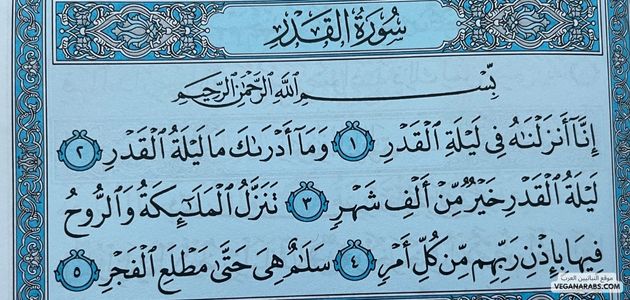 سُورَةُ الْقَدْرِ
بِسْمِ اللَّهِ الرَّحْمَٰنِ الرَّحِيمِ
إِنَّا أَنزَلْنَاهُ فِي لَيْلَةِ الْقَدْرِ ١ وَمَا أَدْرَاكَ مَا لَيْلَةُ الْقَدْرِ ٢
لَيْلَةُ الْقَدْرِ خَيْرٌ مِّنْ أَلْفِ شَهْرٍ ٣ تَنَزَّلُ الْمَلَائِكَةُ وَالرُّوحُ
فِيهَا بِإِذْنِ رَبِّهِم مِّن كُلِّ أَمْرٍ ٤ سَلَامٌ هِيَ حَتَّىٰ مَطْلَعِ الْفَجْرِ ٥
موقع النباتيين العرب
VEGANARABS.COM